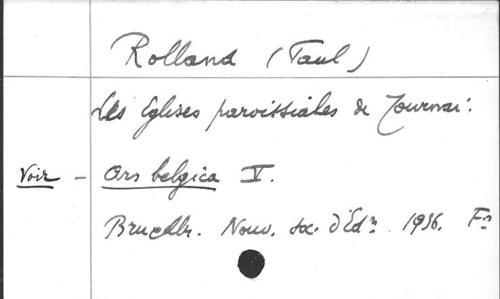 Rolland (Paul)
Les Eglises paroissiales de Tournai.
Voir - Ars belgica V.
Bruxelles. Nouv. soc. d'Edn. 1936. Fo